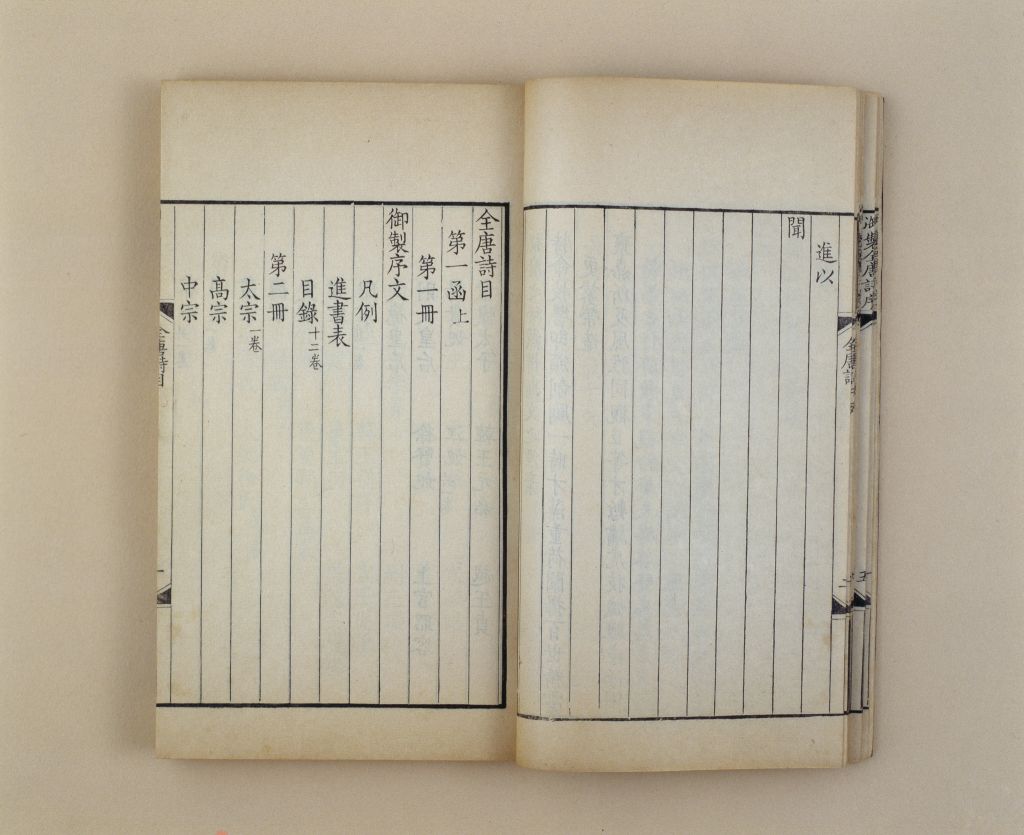 御製全唐詩序
全唐詩
進以
聞
全唐詩目
第一函上
第一冊
御製序文
凡例
進書表
目錄十二卷
第二冊
太宗一卷
高宗
中宗
全唐詩目